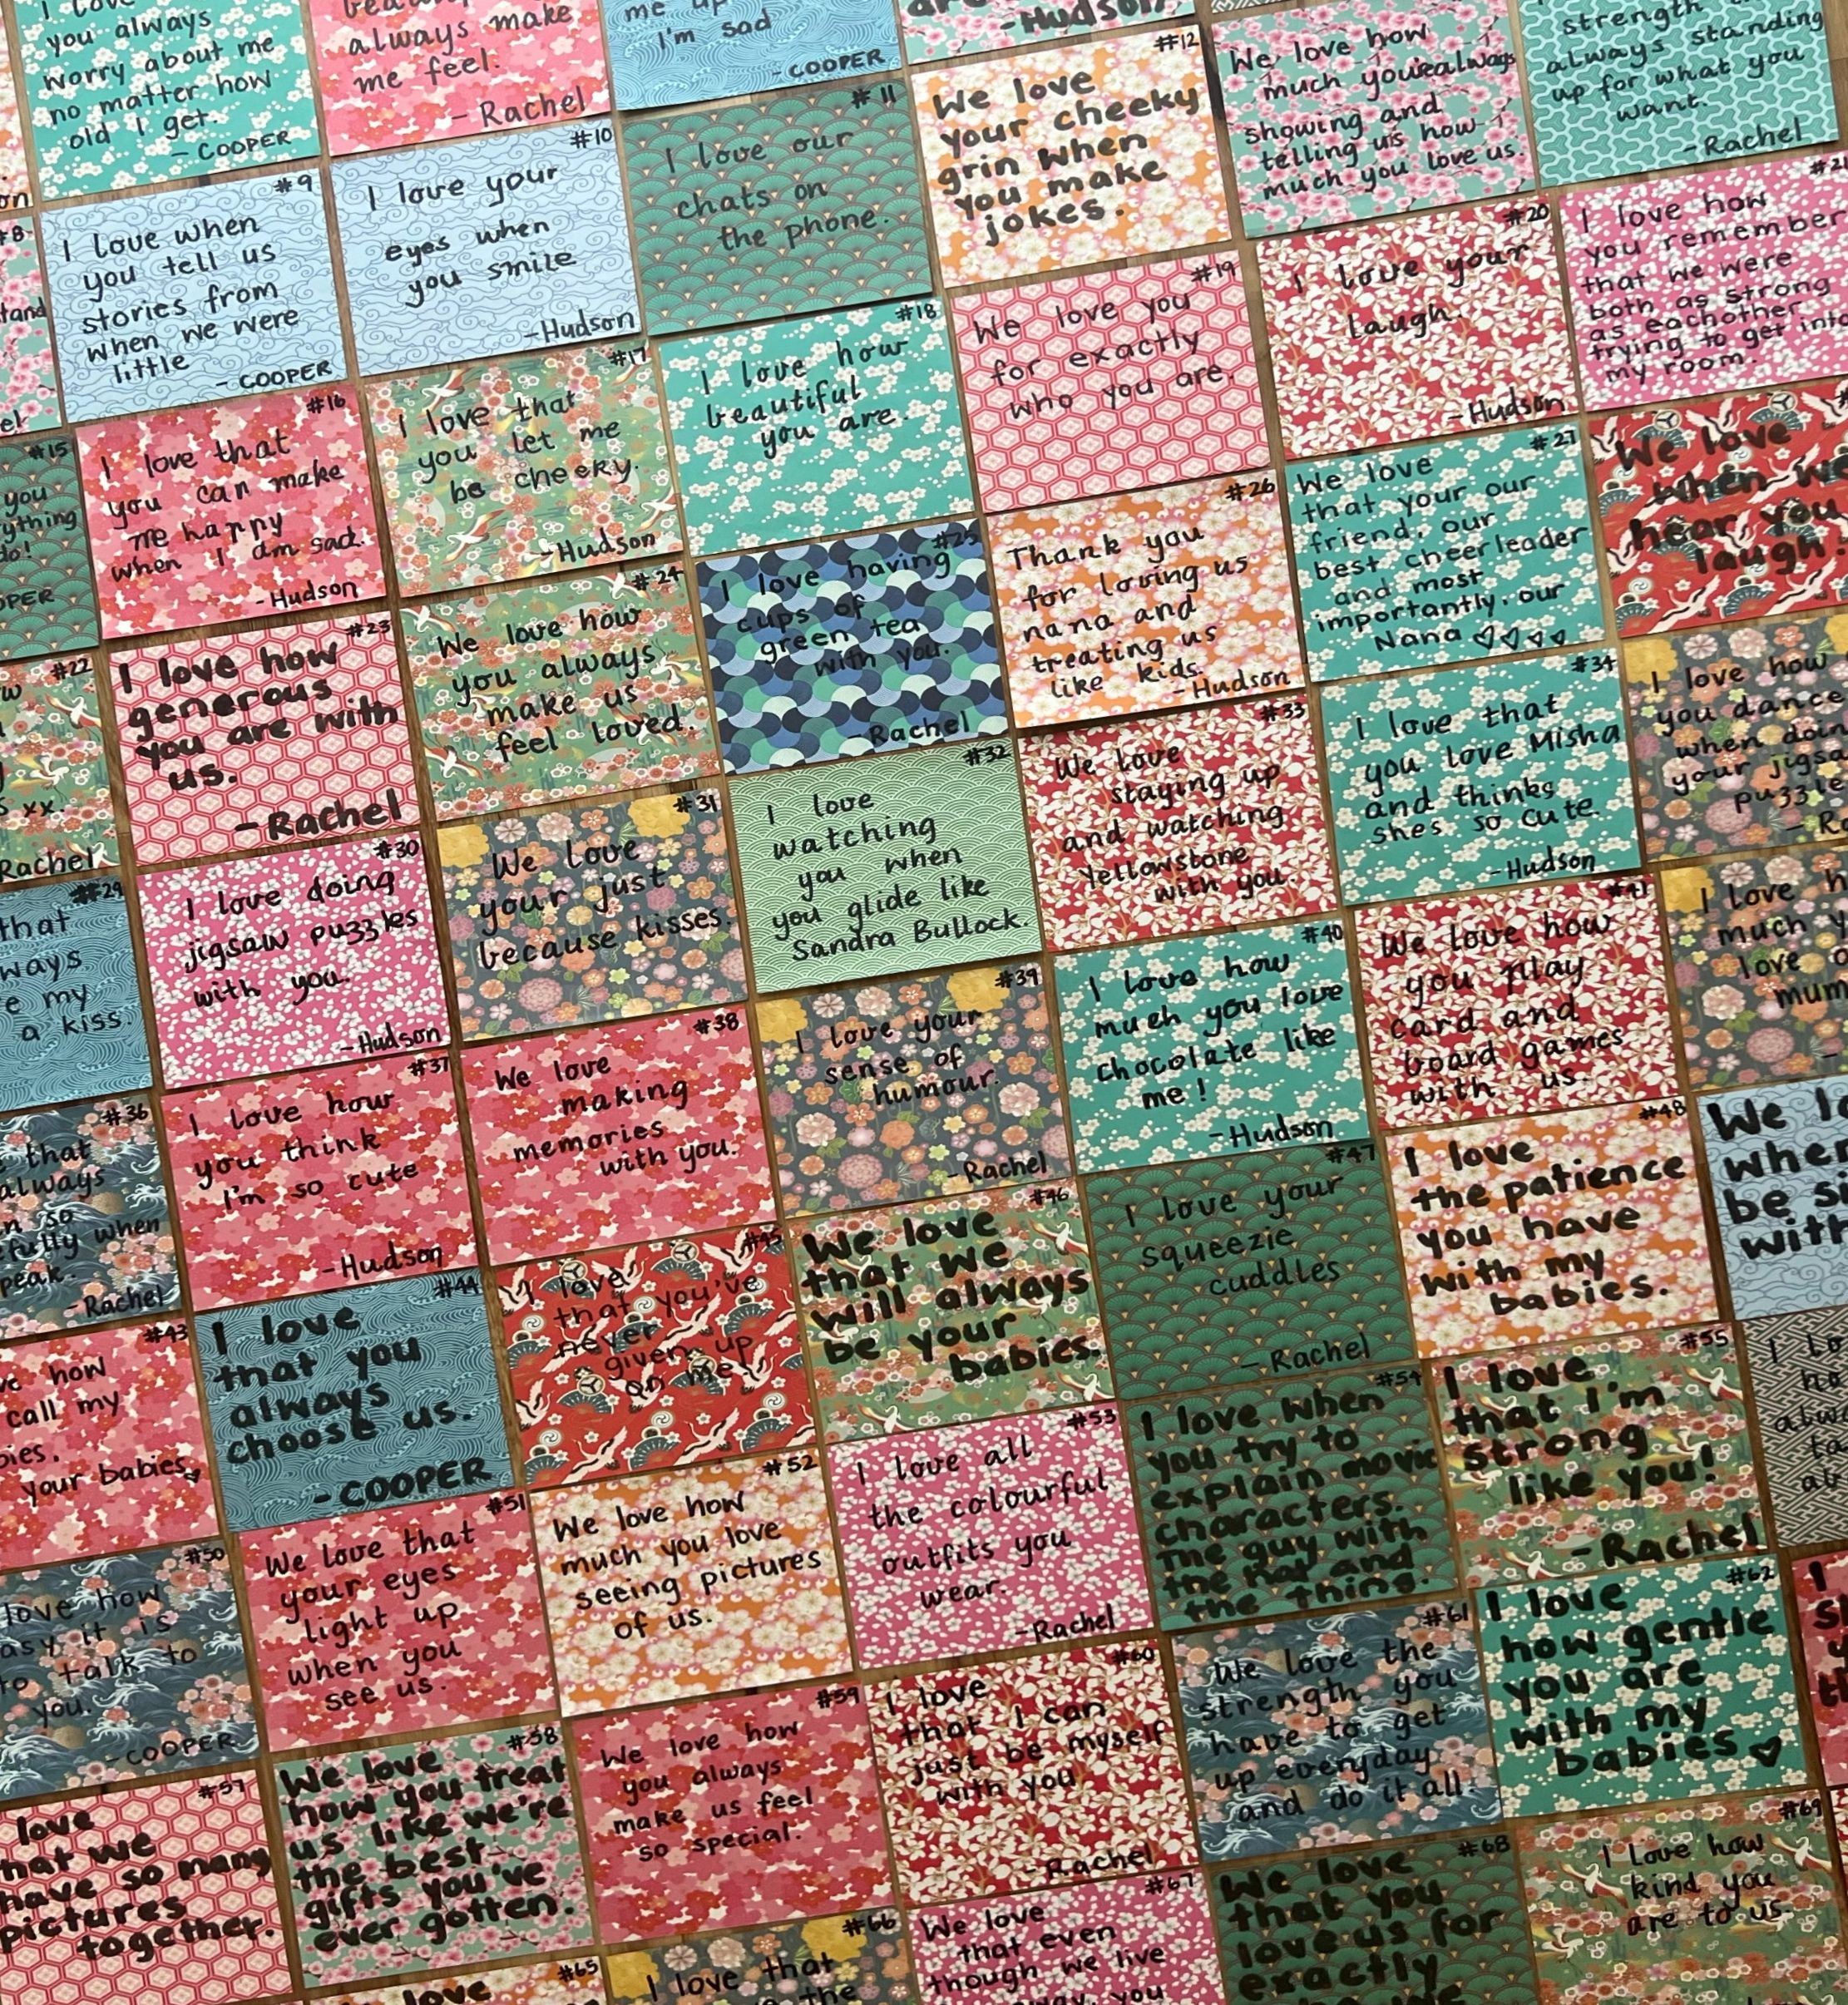 I love
you always
worry about me
no matter how
old I get.
- COOPER
always make
me feel.
- Rachel
me up
I'm sad
- COOPER
- Hudson
#12
We love
your cheeky
grin when
you make
jokes.
We love how
much you're always
showing and
telling us how
much you love us.
strength
always standing
up for what you
want.
- Rachel
#8
#9
I love when
you tell us
stories from
when we were
little
- COOPER
#10
I love your
eyes when
you smile
- Hudson
#11
I love our
chats on
the phone.
#15
you
do!
#16
I love that
you can make
me happy
when I am sad.
- Hudson
#17
I love that
you let me
be cheeky.
- Hudson
#18
I love how
beautiful
you are.
#19
We love you
for exactly
who you are.
#20
I love your
laugh.
- Hudson
I love how
you remember
that we were
both as strong
as eachother
trying to get into
my room.
#22
xx
Rachel
#23
I love how
generous
you are with
us.
- Rachel
#24
We love how
you always
make us
feel loved.
#25
I love having
cups of
green tea
with you.
- Rachel
#26
Thank you
for loving us
nana and
treating us
like kids.
- Hudson
#27
We love
that your our
friend, our
best cheerleader
and most
importantly, our
Nana ♡♡♡♡
We love
when we
hear you
laugh
#29
that
my
a kiss.
#30
I love doing
jigsaw puzzles
with you.
- Hudson
#31
We love
your just
because kisses.
#32
I love
watching
you when
you glide like
Sandra Bullock.
#33
We love
staying up
and watching
Yellowstone
with you.
#34
I love that
you love Misha
and thinks
shes so cute.
- Hudson
I love how
you dance
when doing
your jigsaw
puzzle
#36
that
always
so
when
- Rachel
#37
I love how
you think
I'm so cute
- Hudson
#38
We love
making
memories
with you.
#39
I love your
sense of
humour.
- Rachel
#40
I love how
much you love
chocolate like
me!
- Hudson
#41
We love how
you play
card and
board games
with us.
I love
much
love
mum
#43
how
call my
your babies
#44
I love
that you
always
choose us.
- COOPER
#45
I love
that you've
never
given up
on me!
#46
We love
that we
will always
be your
babies.
#47
I love your
squeezie
cuddles
- Rachel
#48
I love
the patience
you have
with my
babies.
We
be
with
#50
love how
it is
to talk to
you.
- COOPER
#51
We love that
your eyes
light up
when you
see us.
#52
We love how
much you love
seeing pictures
of us.
#53
I love all
the colourful
outfits you
wear.
- Rachel
#54
I love when
you try to
explain movie
characters.
The guy with
the hat and
the thing.
#55
I love
that I'm
strong
like you!
- Rachel
I
#57
love
that we
have so many
pictures
together.
#58
We love
how you treat
us like we're
the best
gifts you've
ever gotten.
#59
We love how
you always
make us feel
so special.
#60
I love
that I can
just be myself
with you
- Rachel
#61
We love the
strength you
have to get
up everyday
and do it all.
#62
I love
how gentle
you are
with my
babies ♡
I
#65
love
#66
I love that
the
#67
We love
that even
though we live
you
#68
We love
that you
love us for
exactly
#69
I love how
kind you
are to us.